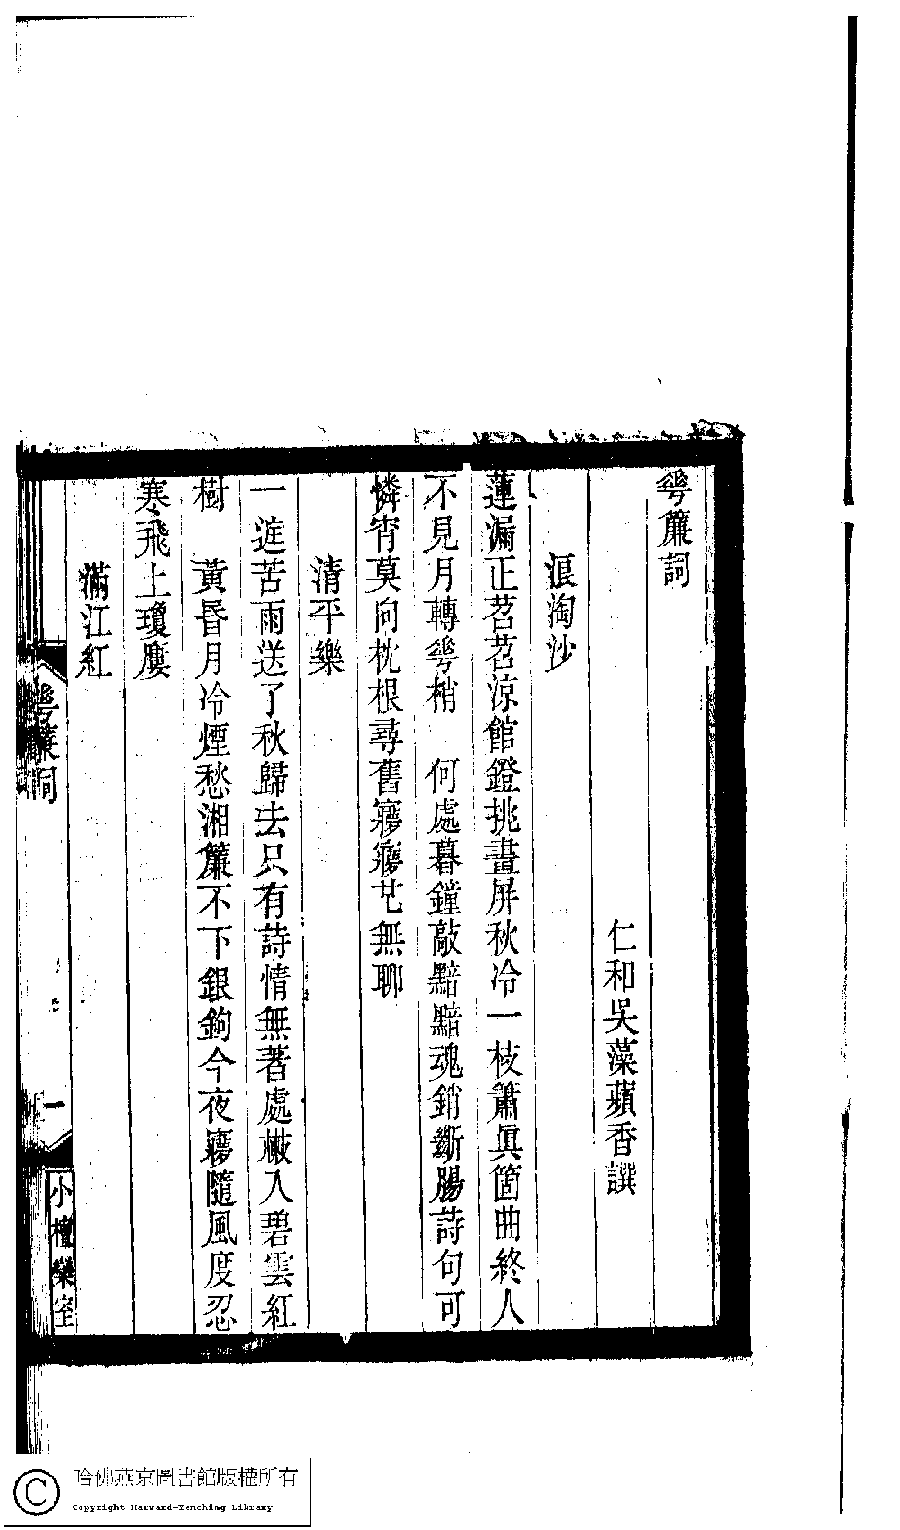 蕚簾詞
仁和吳藻蘋香譔
浪淘沙
蓮漏正苕苕涼館鐙挑畫屏秋冷一枝簫眞箇曲終人
不見月轉蕚梢　何處暮鐘敲黯黯魂銷斷腸詩句可
憐宵莫向枕根尋舊㝱㝱也無聊
清平樂
一庭苦雨送了秋歸去只有詩情無著處㪚入碧雲紅
樹　黃昏月冷煙愁湘簾不下銀鉤今夜㝱隨風度忍
寒飛上瓊廔
滿江紅
簾詞
一
小檀欒室
哈佛燕京圖書館版權所有
Copyright Harvard-Yenching Library